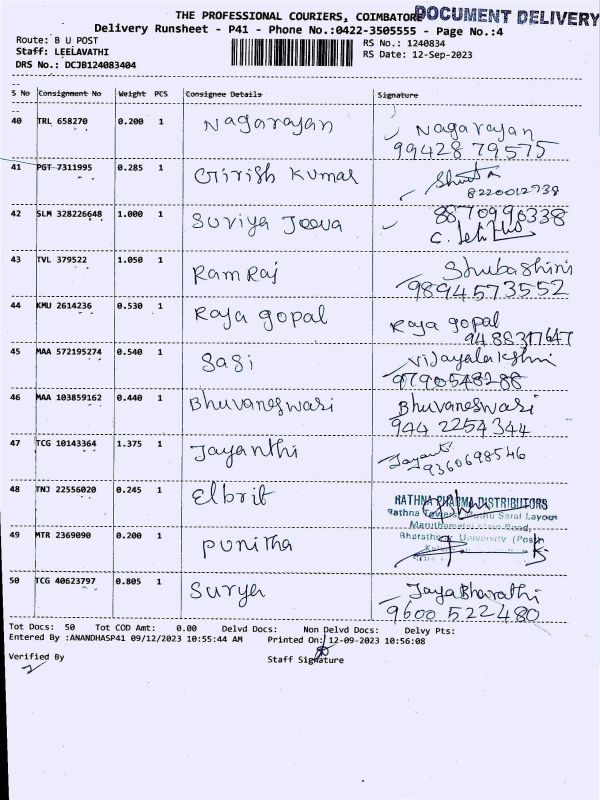 THE PROFESSIONAL COURIERS, COIMBATORE
DOCUMENT DELIVERY
Delivery Runsheet - P41 - Phone No.:0422-3505555 - Page No.:4
Route: B U POST
RS No.: 1240834
Staff: LEELAVATHI
RS Date: 12-Sep-2023
DRS No.: DCJB124083404
S No Consignment No Weight PCS Consignee Details Signature
40 TRL 658270 0.200 1 Nagarajan Nagarajan
99428 79575
41 PGT 7311995 0.285 1 Girish Kumar
8220012738
42 SLM 328226648 1.000 1 Suriya Jeeva 8870996338
43 TVL 379522 1.050 1 Ramraj Shubashini
9894573552
44 KMU 2614236 0.530 1 Raja gopal Raja gopal
9488317647
45 MAA 572195274 0.540 1 Sasi Vijayalakshmi
9790548288
46 MAA 103859162 0.440 1 Bhuvaneswari Bhuvaneswari
944 2254344
47 TCG 10143364 1.375 1 Jayanthi Jayanti
9360698546
48 TNJ 22556020 0.245 1 Elbrit RATHNA PHARMA DISTRIBUTORS
Rathna Towers Layout
Maruthamalai Main Road,
49 MTR 2369090 0.200 1 Punitha Bharathiar University (Post)
50 TCG 40623797 0.805 1 Surya JayaBharathi
9600 522480
Tot Docs: 50 Tot COD Amt: 0.00 Delvd Docs: Non Delvd Docs: Delvy Pts:
Entered By :ANANDHASP41 09/12/2023 10:55:44 AM Printed On: 12-09-2023 10:56:08
Verified By
Staff Signature